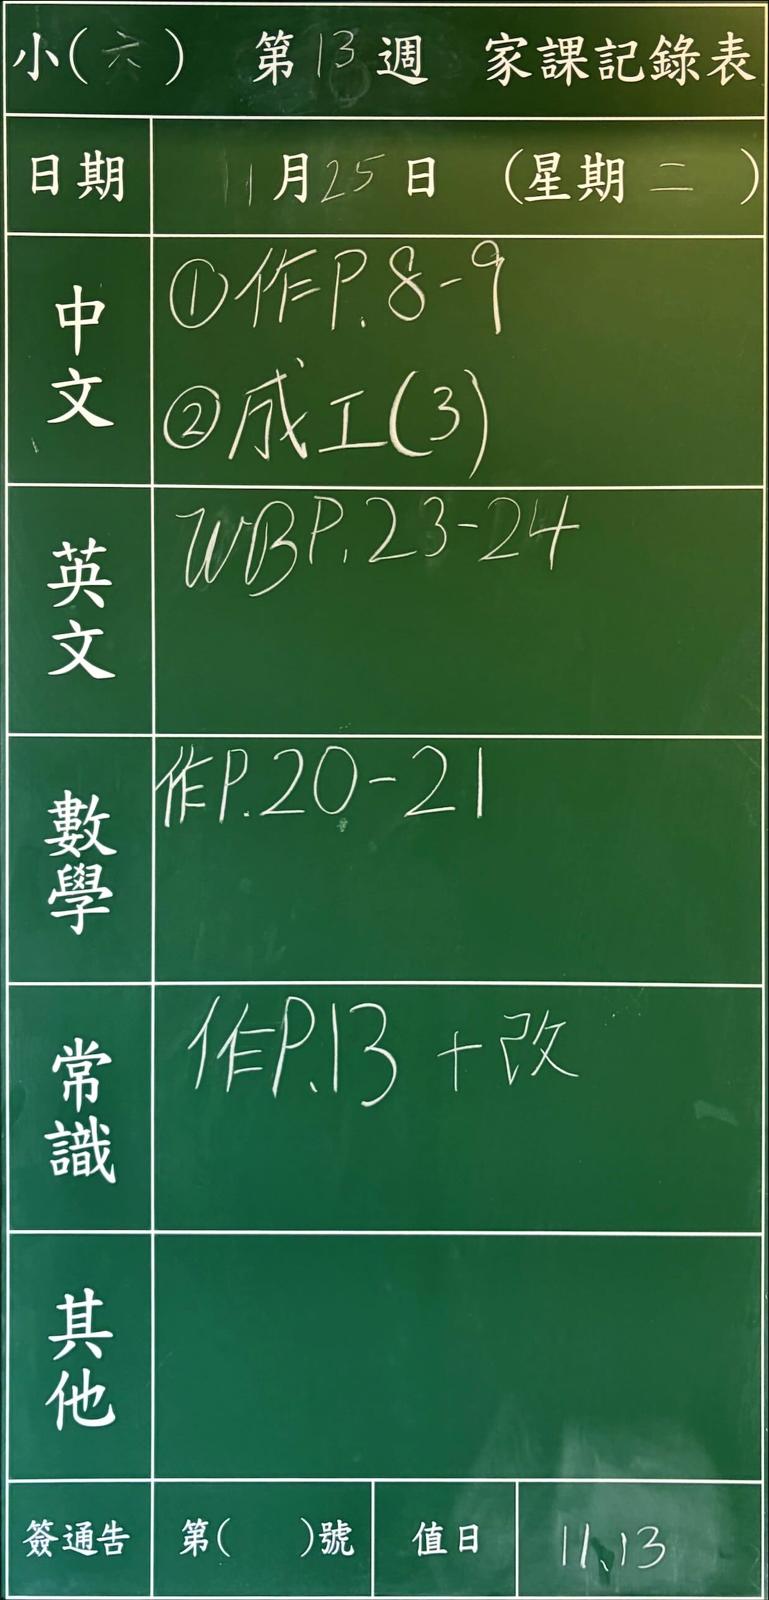 小(六) 第13週 家課記錄表
日期 11月25日 (星期二)
中文
①作P.8-9
②成工(3)
英文
WBP.23-24
數學
作P.20-21
常識
作P.13 +改
其他
簽通告 第( )號 值日 11、13